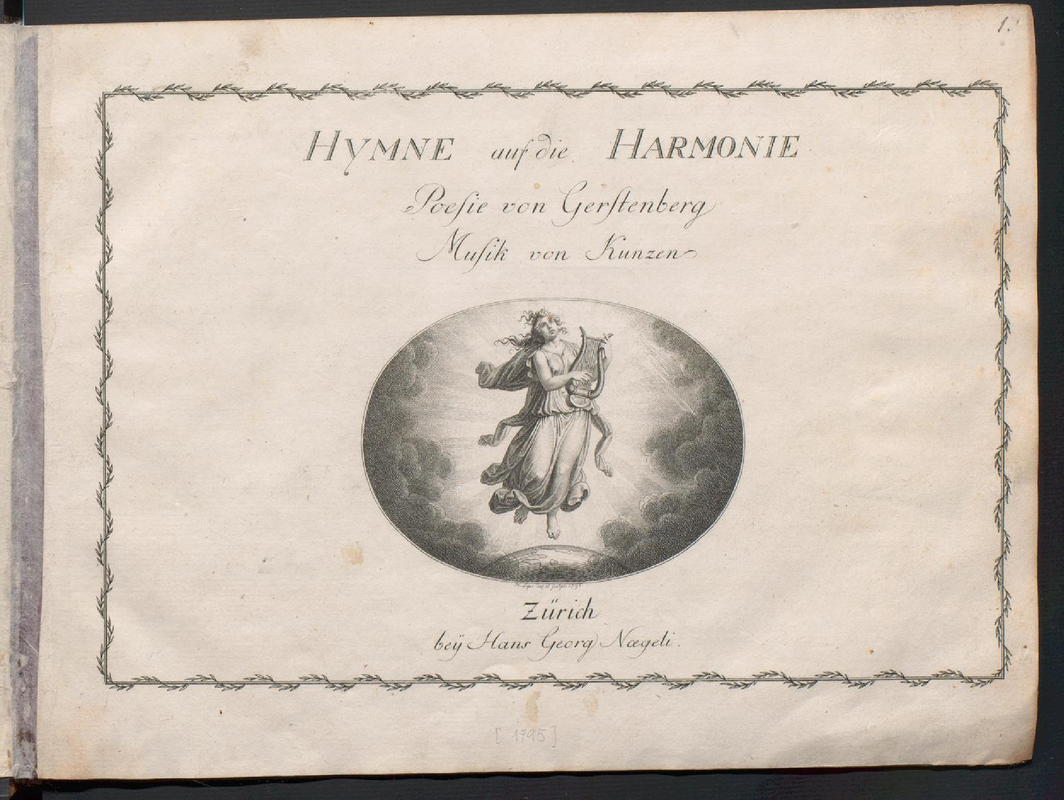 1.
HYMNE auf die HARMONIE
Poeſie von Gerſtenberg
Muſik von Kunzen
Zürich
beÿ Hans Georg Nægeli.
[1795]